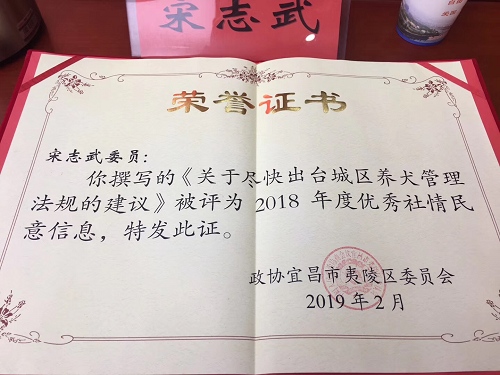 宋志武
荣誉证书
宋志武委员：
你撰写的《关于尽快出台城区养犬管理
法规的建议》被评为 2018 年度优秀社情民
意信息，特发此证。
政协宜昌市夷陵区委员会
2019 年 2 月